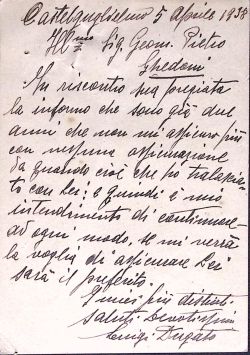 Castelguglielmo 5 Aprile 193
Ill.mo Sig. Geom. Pietro
Ghedoni
In riscontro sua pregiata
la informo che sono già due
anni che non mi assicuro più
con nessuna assicurazione
da quando cioè che ho tralascia-
to con Lei; e quindi è mio
intendimento di continuare
ad ogni modo, se mi verrà
la voglia di assicurare Lei
sarà il preferito.
I miei più distinti
saluti Devotissimo
Luigi Dugato